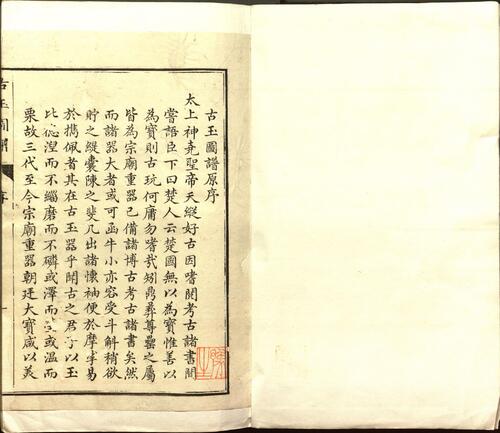 古玉圖譜原序
太上神堯聖帝天縱好古因嗜閱考古諸書間
嘗語臣下曰楚人云楚國無以為寶惟善以
為寶則古玩何庸勿嗜哉矧鼎彝尊罍之屬
皆為宗廟重器已備諸博古考古諸書矣然
而諸器大者或可函牛小亦容受斗斛稍欲
貯之緹囊陳之棐几出諸懷袖便於摩挲易
於攜佩者其在古玉器乎聞古之君子以玉
比德涅而不緇磨而不磷或澤而 或溫而
栗故三代至今宗廟重器朝廷大寶咸以美
古玉圖譜
序
一